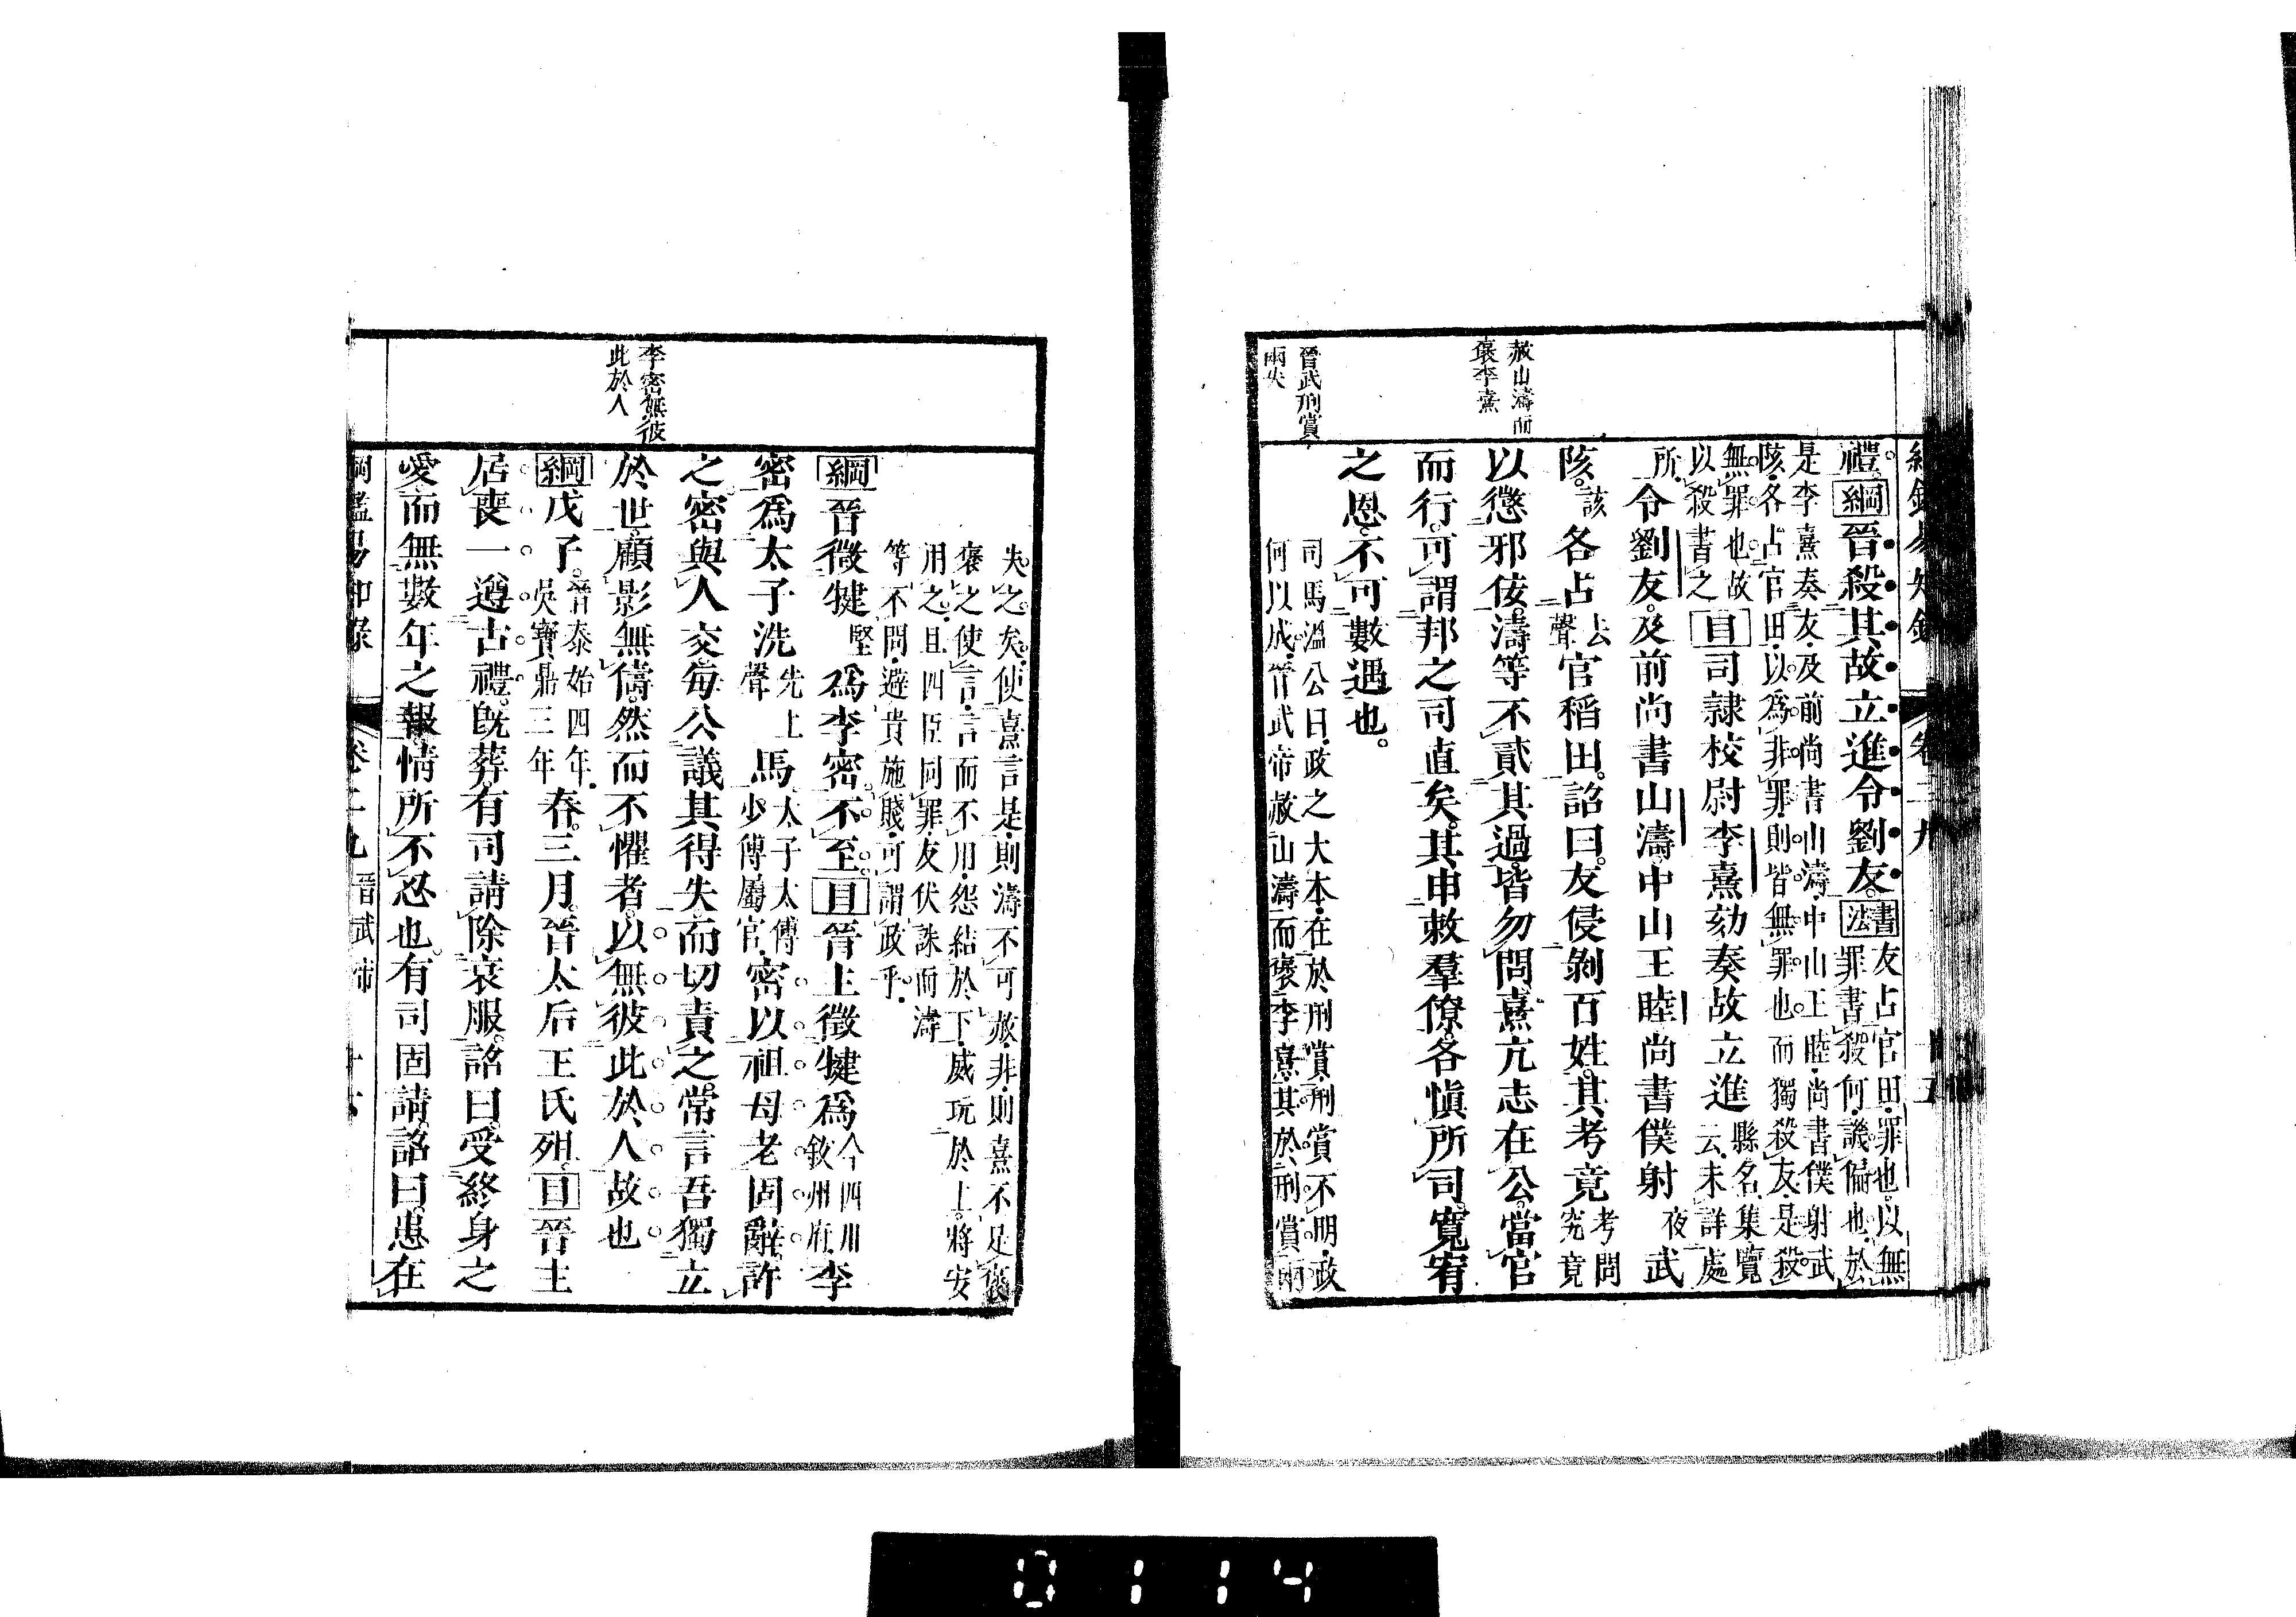 卷二九
禮。綱晉殺其故立進令劉友。書法友占官田罪也。以無
罪書殺何。譏偏也。於
是李熹奏友。及前尚書山濤。中山王睦。尚書僕射武
陔。各占官田。以爲非罪。則皆無罪也。而獨殺友。是殺
無罪也。故
以殺書之目司隸校尉李熹劾奏故立進縣名。集覽
云未詳處
所令劉友。及前尚書山濤。中山王睦。尚書僕射夜武
陔。該各占去聲官稻田。詔曰。友侵剝百姓。其考竟考問
究竟
以懲邪佞。濤等不貳其過。皆勿問。熹亢志在公。當官
而行。可謂邦之司直矣。其申敕羣僚。各慎所司。寬宥
之恩。不可數遇也。
司馬溫公曰。政之大本。在於刑賞。刑賞不明。政
何以成。晉武帝赦山濤而褒李熹。其於刑賞兩
赦山濤而
褒李熹
晉武刑賞
兩失
失之矣。使熹言是。則濤不可赦。非。則熹不足褒。
褒之使言。言而不用。怨結於下。威玩於上。將安
用之。且四臣同罪。友伏誅而濤
等不問。避貴施賤。可謂政乎。
綱晉徵犍堅爲李密。不至。目晉主徵犍爲今四川
敘州府。李
密爲太子洗先上
聲馬太子太傅
少傅屬官。密以祖母老固辭。許
之。密與人交。每公議其得失。而切責之。常言吾獨立
於世。顧影無儔。然而不懼者。以無彼此於人故也
綱戊子。晉泰始四年。
吳寶鼎三年春。三月。晉太后王氏殂。目晉主
居喪一遵古禮。旣葬有司請除衰服。詔曰。受終身之
愛而無數年之報。情所不忍也。有司固請。詔曰。患在
李密無彼
此於人
綱鑑易知錄 卷二九 晉武帝
0114